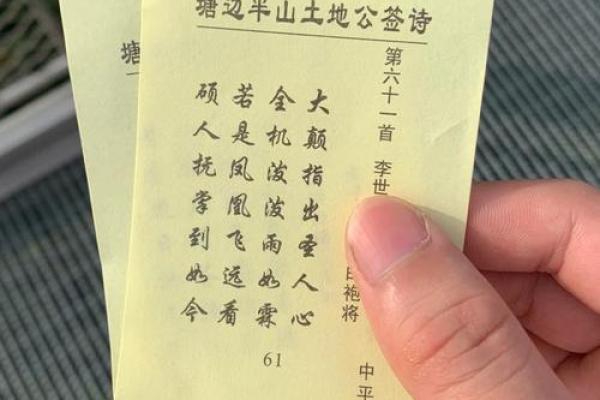 塘边半山土地公签诗
第六十一首 李世
白袍将
中平
大颠指出圣人心
全机泼泼雨如霖
若是凤凰飞远看
硕人抚掌到如今
61
塘